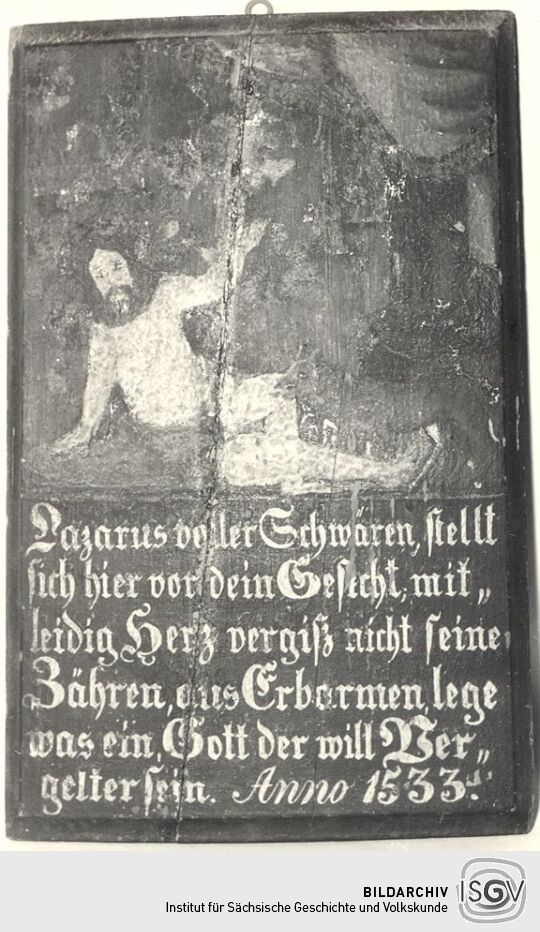 Lazarus voller Schwären, stellt
sich hier vor dein Gesicht, mit„
leidig Herz vergiß nicht seine
Zähren, aus Erbarmen lege
was ein, Gott der will Ver„
gelter sein. Anno 1533.
BILDARCHIV
Institut für Sächsische Geschichte und Volkskunde
ISGV